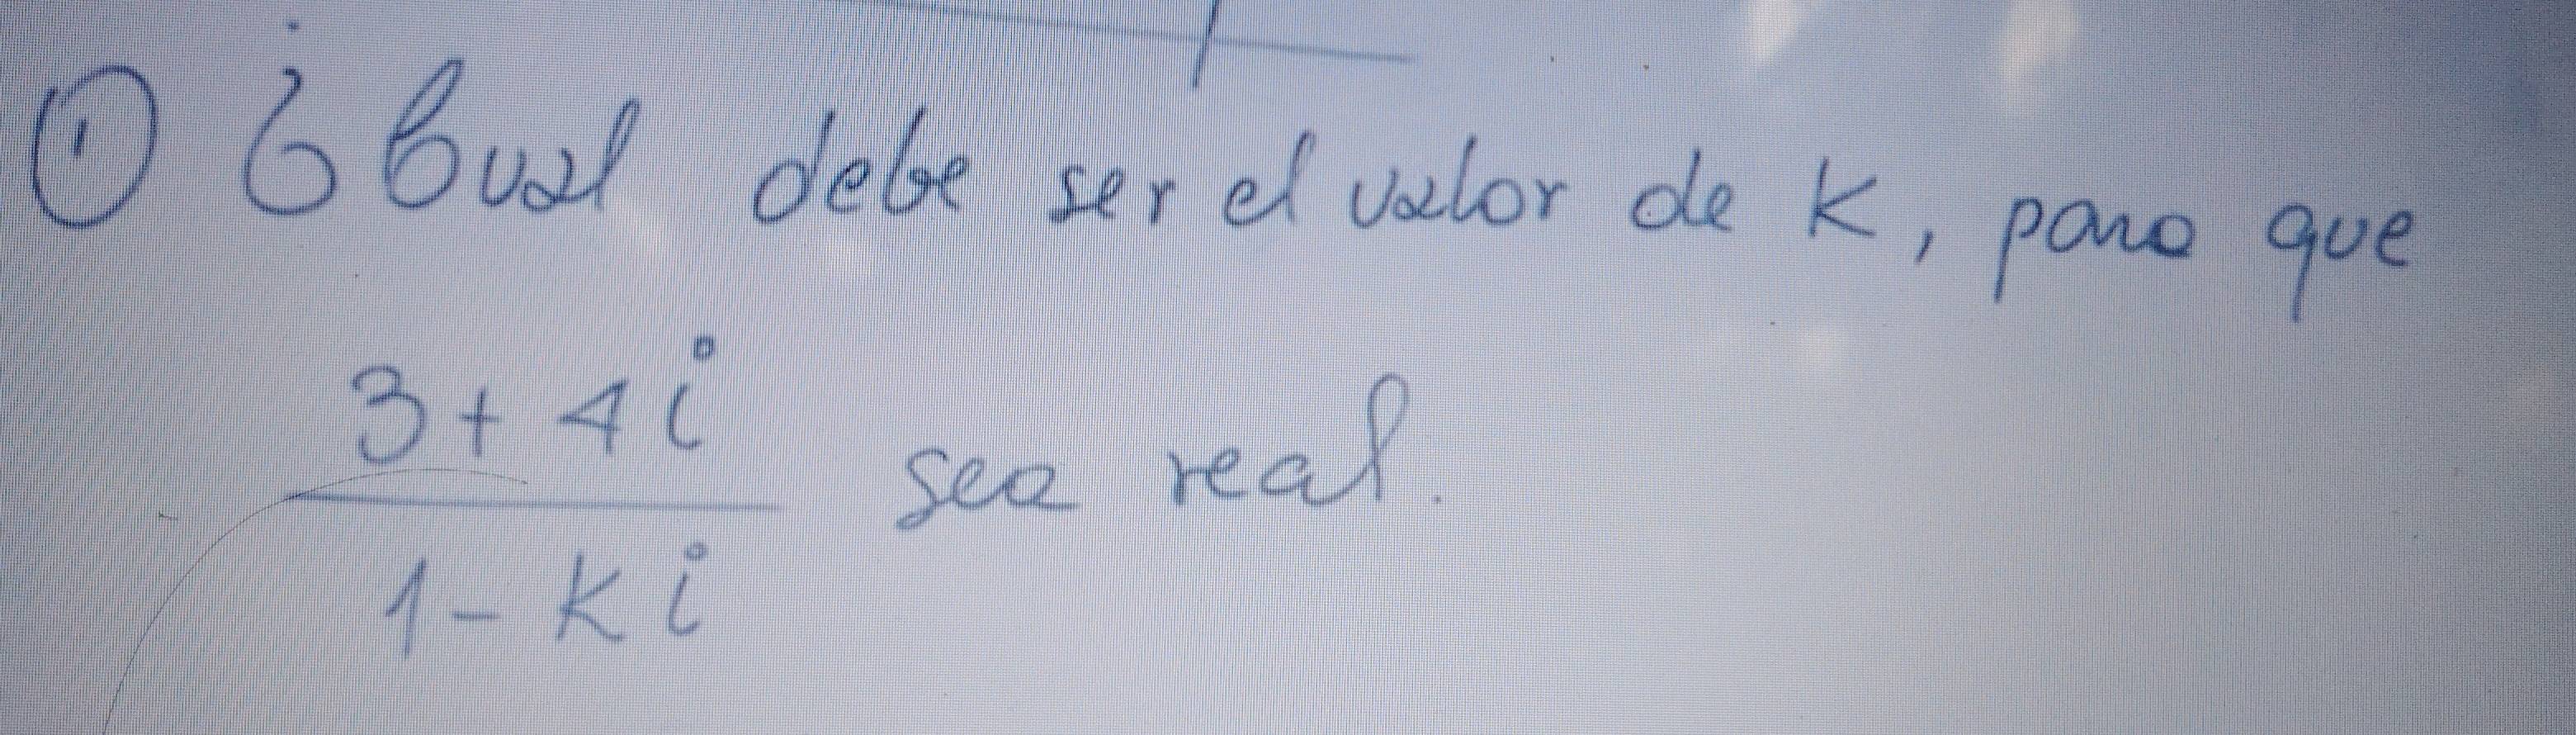 ① ¿Cual debe ser el valor de K, para que
3 + 4i
1 - Ki
sea real.